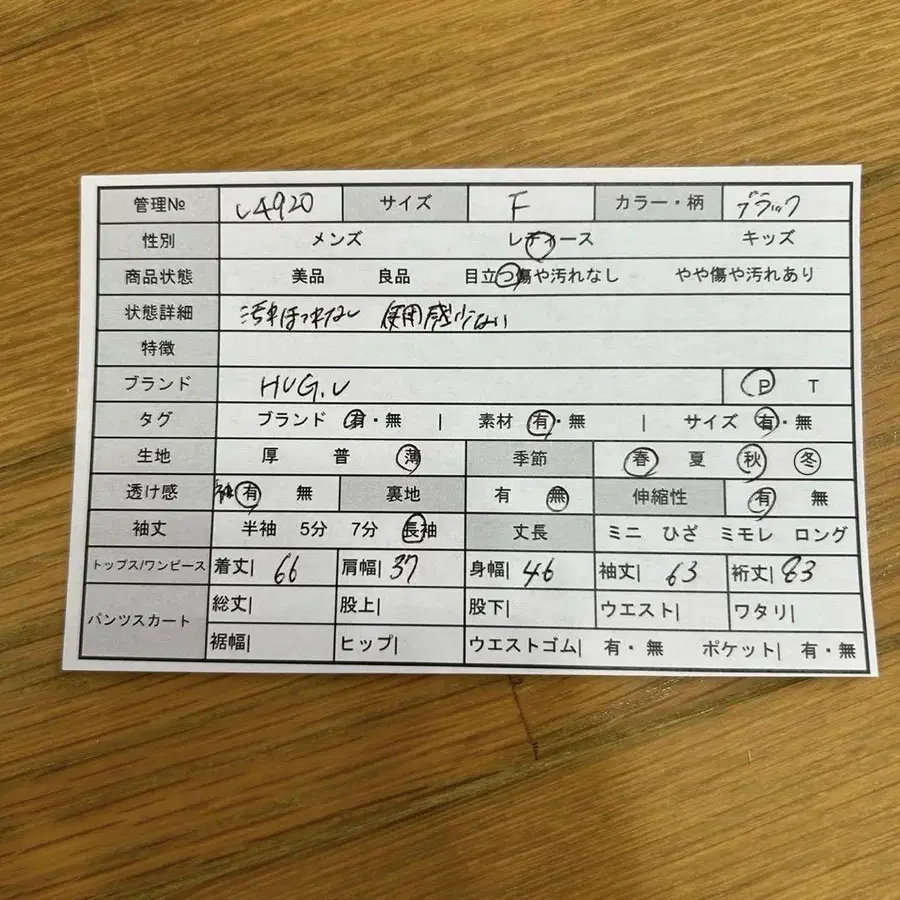 管理№ L4920 サイズ F カラー・柄 ブラック
性別 メンズ レディース キッズ
商品状態 美品 良品 目立つ傷や汚れなし やや傷や汚れあり
状態詳細 汚れほつれなし 使用感少ない
特徴
ブランド HUG.U P T
タグ ブランド 有・無 | 素材 有・無 | サイズ 有・無
生地 厚 普 薄 季節 春 夏 秋 冬
透け感 袖 有 無 裏地 有 無 伸縮性 有 無
袖丈 半袖 5分 7分 長袖 丈長 ミニ ひざ ミモレ ロング
トップス/ワンピース 着丈| 66 肩幅| 37 身幅| 46 袖丈| 63 裄丈| 83
パンツスカート 総丈| 股上| 股下| ウエスト| ワタリ|
裾幅| ヒップ| ウエストゴム| 有・無 ポケット| 有・無